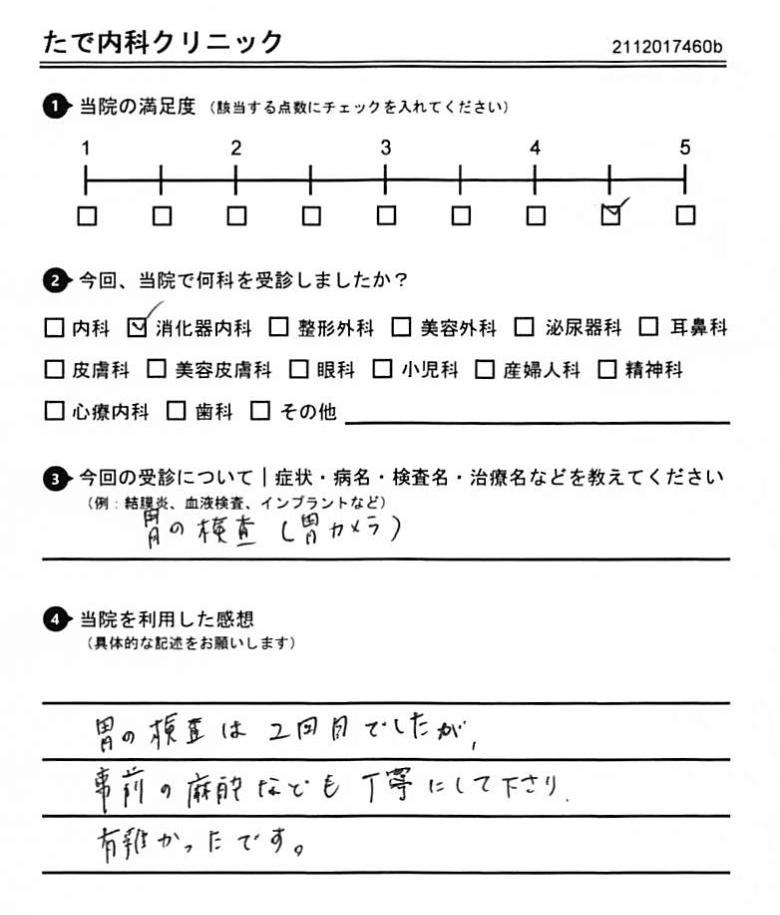 たで内科クリニック
2112017460b
1 当院の満足度 (該当する点数にチェックを入れてください)
1 2 3 4 5
2 今回、当院で何科を受診しましたか?
内科 消化器内科 整形外科 美容外科 泌尿器科 耳鼻科
皮膚科 美容皮膚科 眼科 小児科 産婦人科 精神科
心療内科 歯科 その他
3 今回の受診について|症状・病名・検査名・治療名などを教えてください
(例:結膜炎、血液検査、インプラントなど)
胃の検査(胃カメラ)
4 当院を利用した感想
(具体的な記述をお願いします)
胃の検査は2回目でしたが、
事前の麻酔なども丁寧にして下さり、
有難かったです。